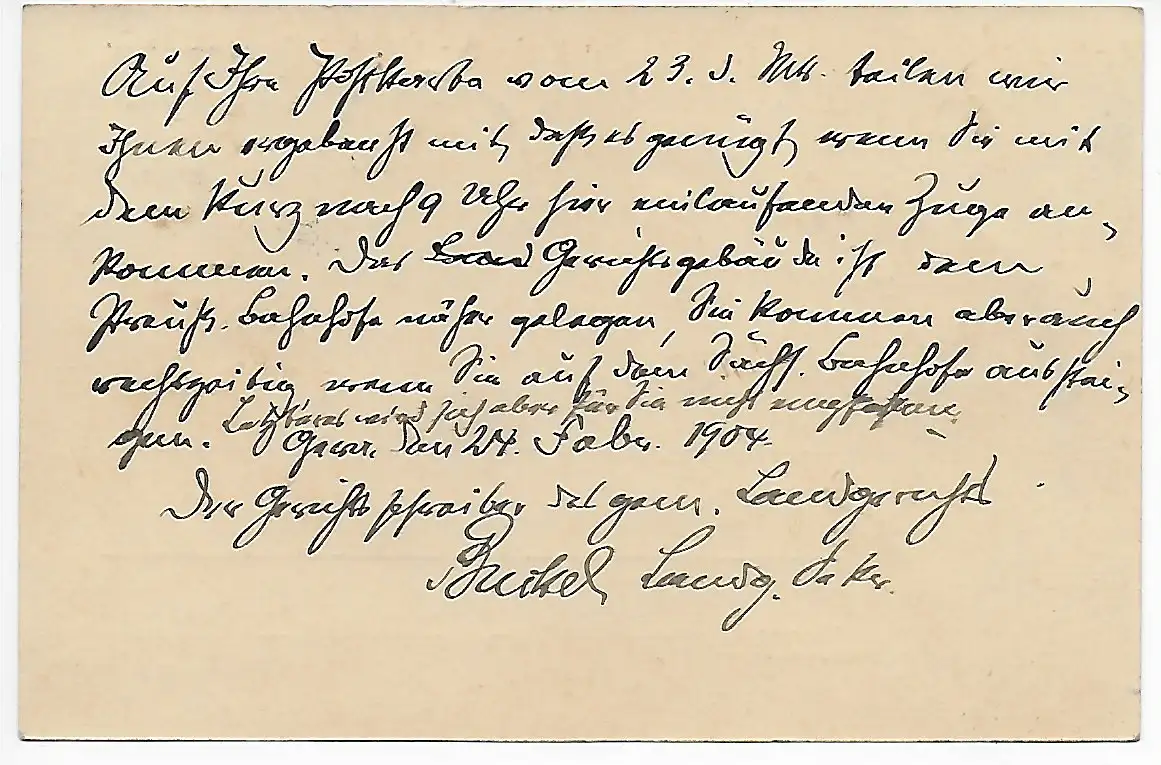 Auf Ihre Postkarte vom 23. d. Mts. teilen wir
Ihnen ergebenst mit, daß es genügt, wenn Sie mit
dem kurz nach 9 Uhr hier einlaufenden Zuge an-
kommen. Das Gerichtsgebäude ist dem
Preuß. Bahnhofe näher gelegen, Sie kommen aber auch
rechtzeitig wenn Sie auf dem Sächs. Bahnhofe ausstei-
Letzteres wird sich aber für Sie nicht empfehlen.
gen. Gera, den 24. Febr. 1904.
Der Gerichtsschreiber des gem. Landgerichts
Landg. Sekr.